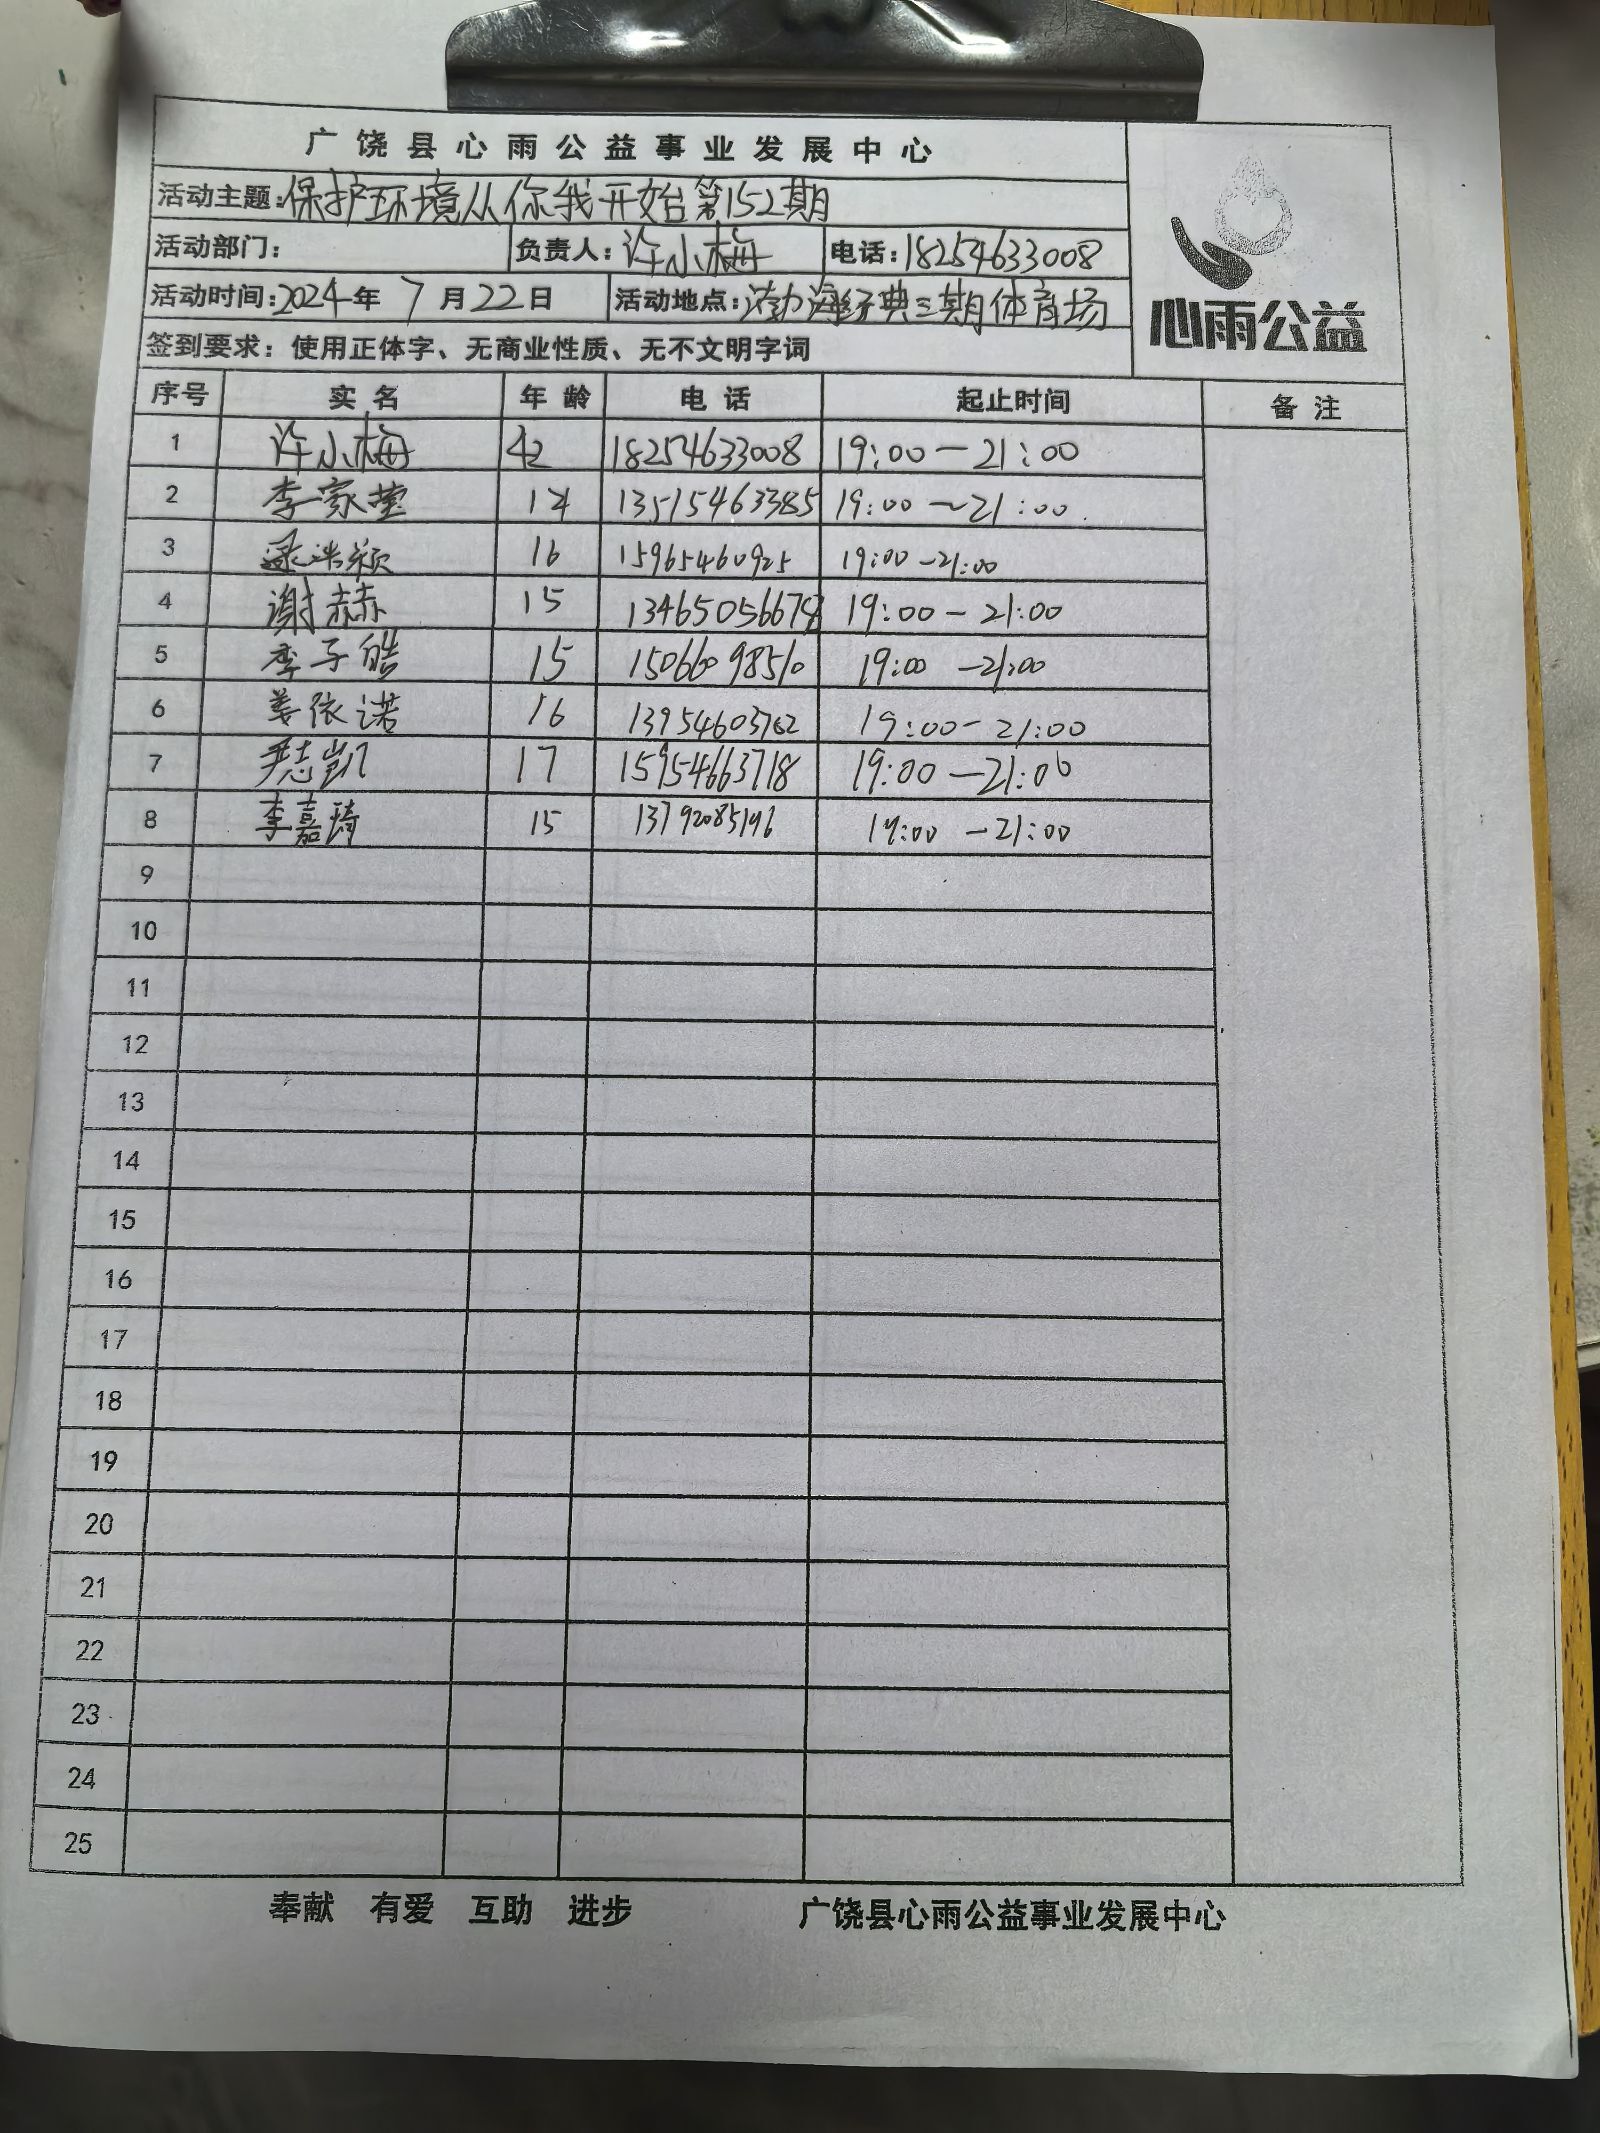 广饶县心雨公益事业发展中心
活动主题：保护环境从你我开始第152期
活动部门： 负责人：许小梅 电话：18254633008
活动时间：2024年7月22日 活动地点：渤海经典三期体育场
签到要求：使用正体字、无商业性质、无不文明字词
心雨公益
序号 实名 年龄 电话 起止时间 备注
1 许小梅 42 18254633008 19:00—21:00
2 李家莹 14 13515463385 19:00～21:00
3 16 15965460925 19:00-21:00
4 谢赫 15 19:00-21:00
5 李子皓 15 15066098510 19:00-21:00
6 姜依诺 16 13954603762 19:00-21:00
7 尹志凯 17 15954663718 19:00—21:00
8 李嘉琦 15 13792085196 19:00-21:00
9
10
11
12
13
14
15
16
17
18
19
20
21
22
23
24
25
奉献 有爱 互助 进步 广饶县心雨公益事业发展中心